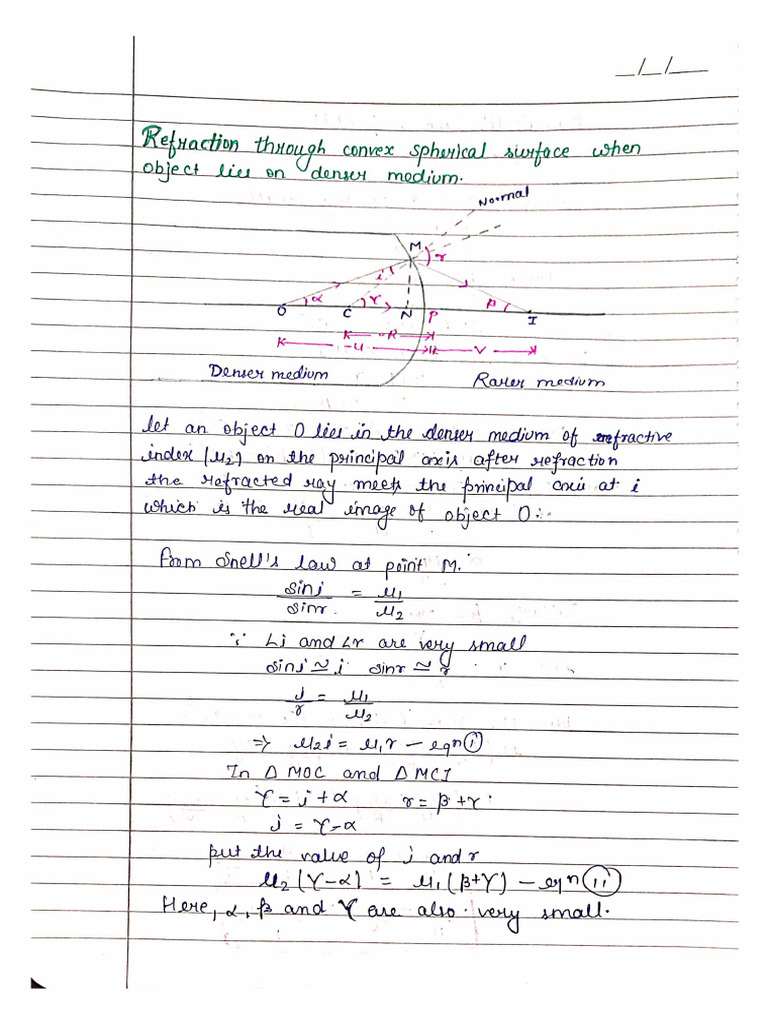 _/_/__
Refraction through convex spherical surface when
object lies on denser medium.
Normal
M
r
i
α
γ
β
O
C
N
P
I
-R
-u
v
Denser medium
Rarer medium
let an object O lies in the denser medium of refractive
index (μ2) on the principal axis after refraction
the refracted ray meets the principal axis at i
which is the real image of object O:-
from Snell's law at point M.
sini = μ1
sinr. μ2
∵ ∠i and ∠r are very small
sini ≅ i sinr ≅ r
i = μ1
r μ2
⇒ μ2i = μ1r - eqn (i)
In Δ MOC and Δ MCI
γ = i + α r = β + γ
i = γ - α
put the value of i and r
μ2 (γ-α) = μ1 (β+γ) - eqn (ii)
Here, α, β and γ are also very small.